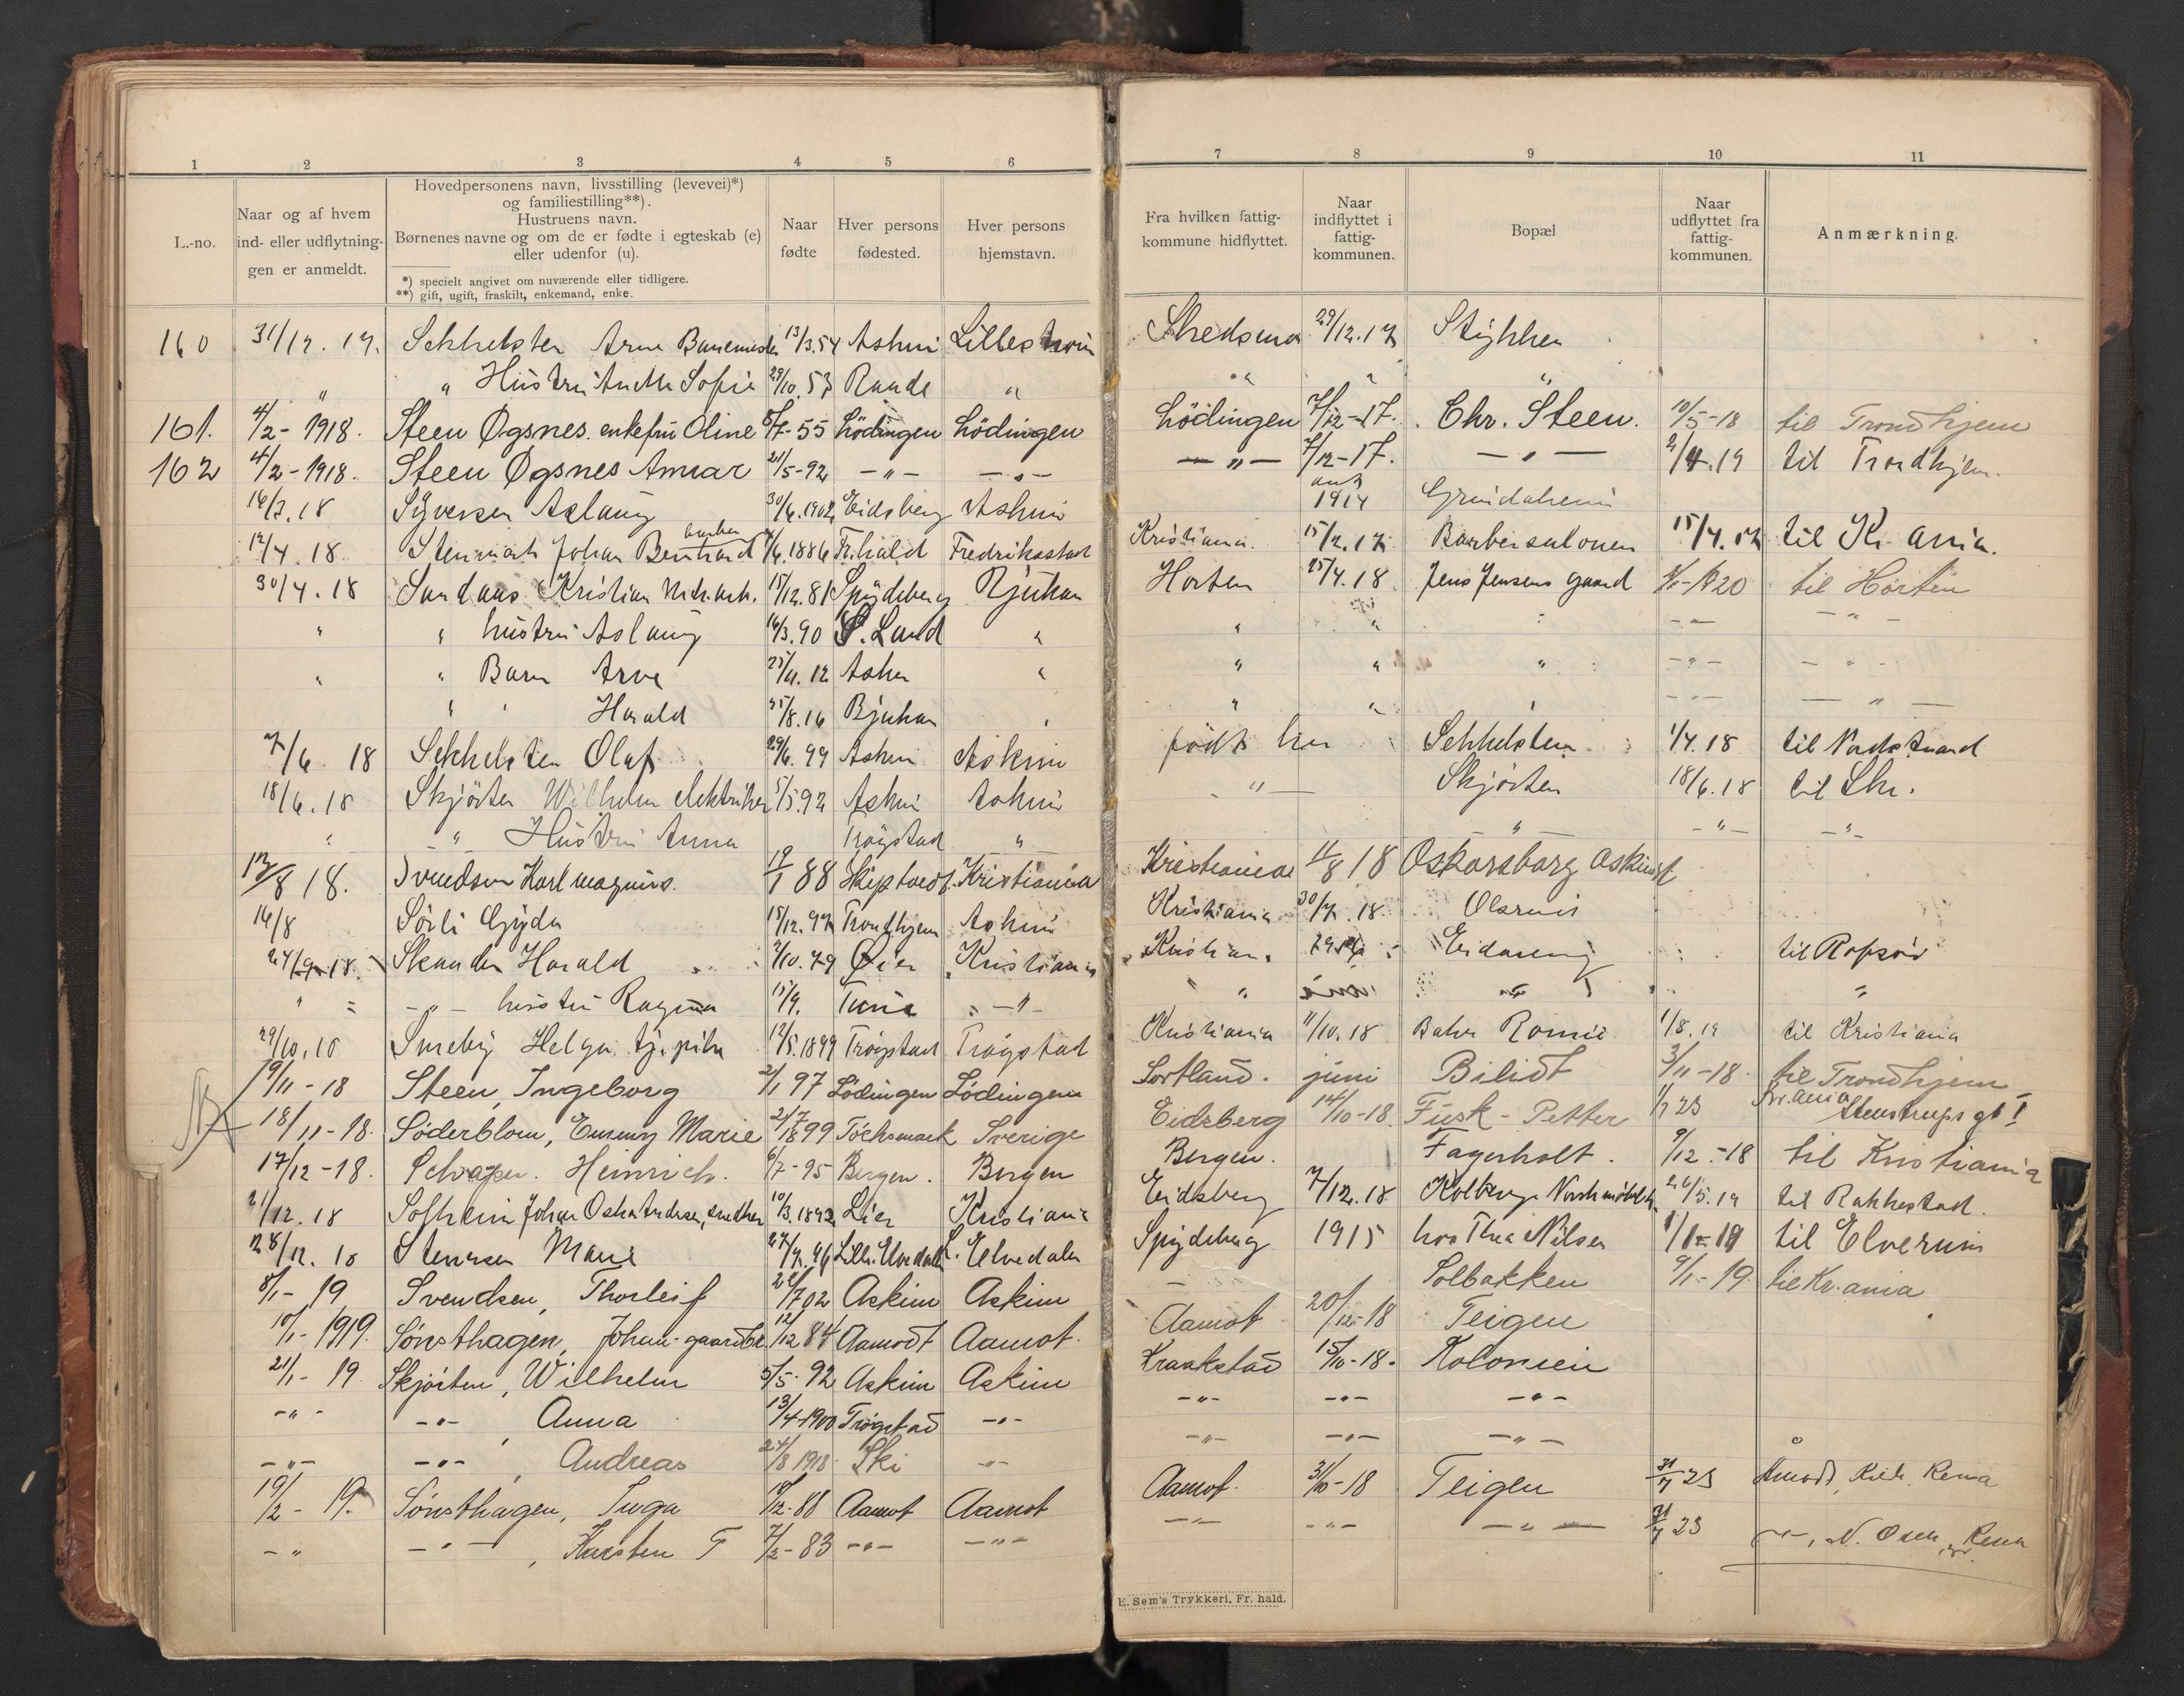 1 2 3 4 5 6 7 8 9 10 11
L.-no.
Naar og af hvem ind- eller udflytningen er anmeldt.
Hovedpersonens navn, livsstilling (levevei)*)
og familiestilling**).
Hustruens navn.
Børnenes navne og om de er fødte i egteskab (e)
eller udenfor (u).
*) specielt angivet om nuværende eller tidligere.
**) gift, ugift, fraskilt, enkemand, enke.
Naar fødte
Hver persons fødested.
Hver persons hjemstavn.
Fra hvilken fattigkommune hidflyttet.
Naar indflyttet i fattigkommunen.
Bopæl
Naar udflyttet fra fattigkommunen.
Anmærkning.
160 31/12.17. Sekkelsten Arne Banemester 13/3.54 Askim Lillestrøm Skedsmo 29/12.17 Stykket
" " Hustru Sofie 29/10.57 Raade " " " "
161. 4/2-1918. Steen Øgsnes. enkefru Oline 8/7-55 Lödingen Lödingen Lödingen 7/12-17. Chr. Steen. 10/5-18 til Trondhjem
162 4/2-1918. Steen Øgsnes Ansar 21/5-92 -"- -"- -"- 7/12-17. -"- 2/4.19 til Trondhjem.
16/3.18 Syversen Aslaug 30/6.1902 Eidsberg Askim 1914
12/4.18 Johan Bernhard barber /6.1886 Fr.hald Fredrikstad Kristiania. 15/2.17 Barbersalonen 15/4.17 til Kr.ania.
30/4.18 Sandaas Kristian 15/12.81 Spydeberg Rjukan Horten 25/4.18 Jens Jensens gaard til Horten
" " hustru Aslaug 16/3.90 S. Land " " " -"- -"-
" " Barn Arve 12 Asker " " " " -"- -"-
" " Harald 25/8.16 Rjukan " " " " -"- -"-
7/6. 18 Sekkelsten Olaf 29/6.99 Askim Askim født her Sekkelsten 1/4.18 til Nordstrand
18/6.18 Skjörten Wilhelm elektriker 5/5.92 Askim Askim -"- Skjörten 18/6.18 til Ski.
" -"- Hustru Anna Trøgstad " " -"- -"-
12/8 18. Svendsen Karl magnus. 19/1 88 Skiptvedt. Kristiania Kristiania 11/8 18 Oskarsborg Askim st
16/8 Sörli Gyda 15/12.97 Trondhjem Askim Kristiania 30/7.18.
24/9-18. Skanden Harald 2/10.79 Øier Kristiania Kristiania til
" -"- hustru Ragna 15/9. Tune -"- " " "
29/10.18 Smeby Helga tj.pike 12/5.1899 Trøgstad Trøgstad Kristiania 11/10.18 1/8.19 til Kristiania
19/11-18 Steen, Ingeborg 2/1 97 Lödingen Lödingen Sortland. juni Bilidt 3/11-18. til Trondhjem
18/11-18. Söderblom, Emmy Marie 2/7 1899 Töcksmark Sverige Eidsberg 14/10-18. Fusk-Petter 1/7 23 Kr.ania Stenstrups gt I
17/12-18. Heinrich. 6/7-95 Bergen. Bergen Bergen. Fagerholt. 9/12.-18 til Kristiania
21/12.18 Solheim Johan Oskar Andersen, snekker 10/3.1892 Lier Kristiania Eidsberg 7/12.18 26/5.19 til Rakkestad.
28/12.18 Stensen Marie Lille Elvedalen L. Elvedalen Spydeberg 1915 hos Thea Nilsen til Elverum
8/1-19 Svendsen, Thorleif 22/7 02 Askim Askim — Solbakken 9/1-19. til Kr.ania
10/1-1919. Sønsthagen, Johan-gaardbr. 12/12 84 Aamodt Aamot. Aamot 20/12-18 Teigen
21/1-19 Skjörten, Wilhelm 5/5-92 Askim Askim Kraakstad 15/10-18. Kolonien
-"- -"- Anna 13/4-1900 Trøgstad -"- -"- -"- -"-
-"- -"-, Andreas 24/8 1918. Ski -"- -"- -"- -"-
19/2-19. Sønsthagen, Inga /12-88 Aamot Aamot Aamot. 3/10-18 Teigen 31/7 23 Åmodt, Rena
-"- -"-, Karsten T 7/2-83 -"- -"- -"- -"- -"- 31/7 23 -"-, N. Osen, Rena
E. Sem's Trykkeri, Fr.hald.